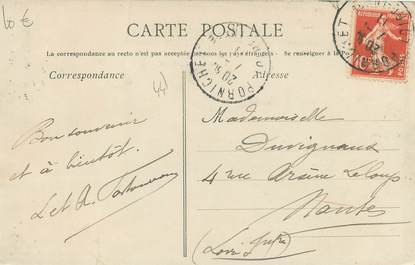 10 €
CARTE POSTALE
La correspondance au recto n'est pas acceptée par tous les pays étrangers. Se renseigner à la
Correspondance
Adresse
44
PORNICHET
Bon souvenir
et à bientôt.
L et R.
Mademoiselle
Duvignaux
4 rue Arsène Leloup
Nantes
(Loire Infre)